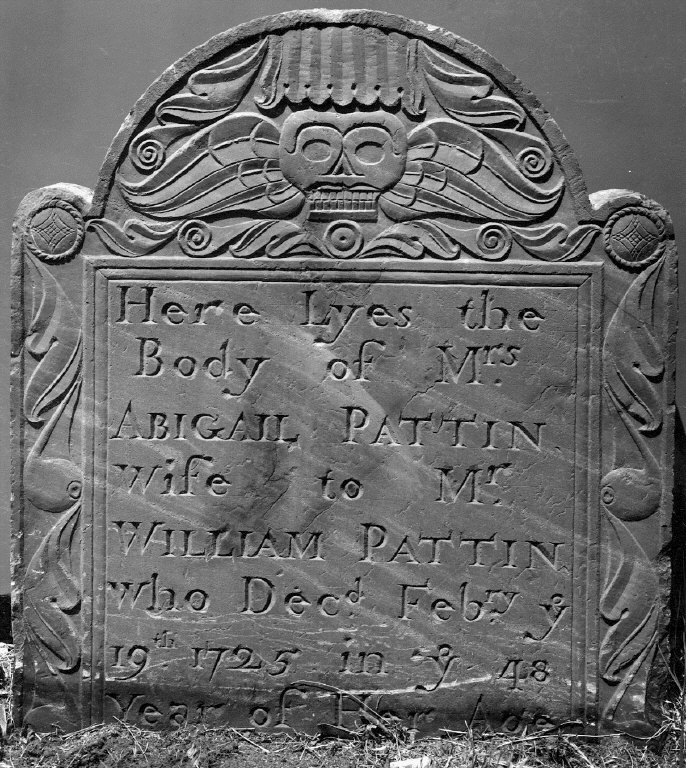 Here Lyes the
Body of Mrs.
ABIGAIL PATTIN
Wife to Mr.
WILLIAM PATTIN
who Decd Febry ye
19th 1725 in ye 48
Year of Her Age